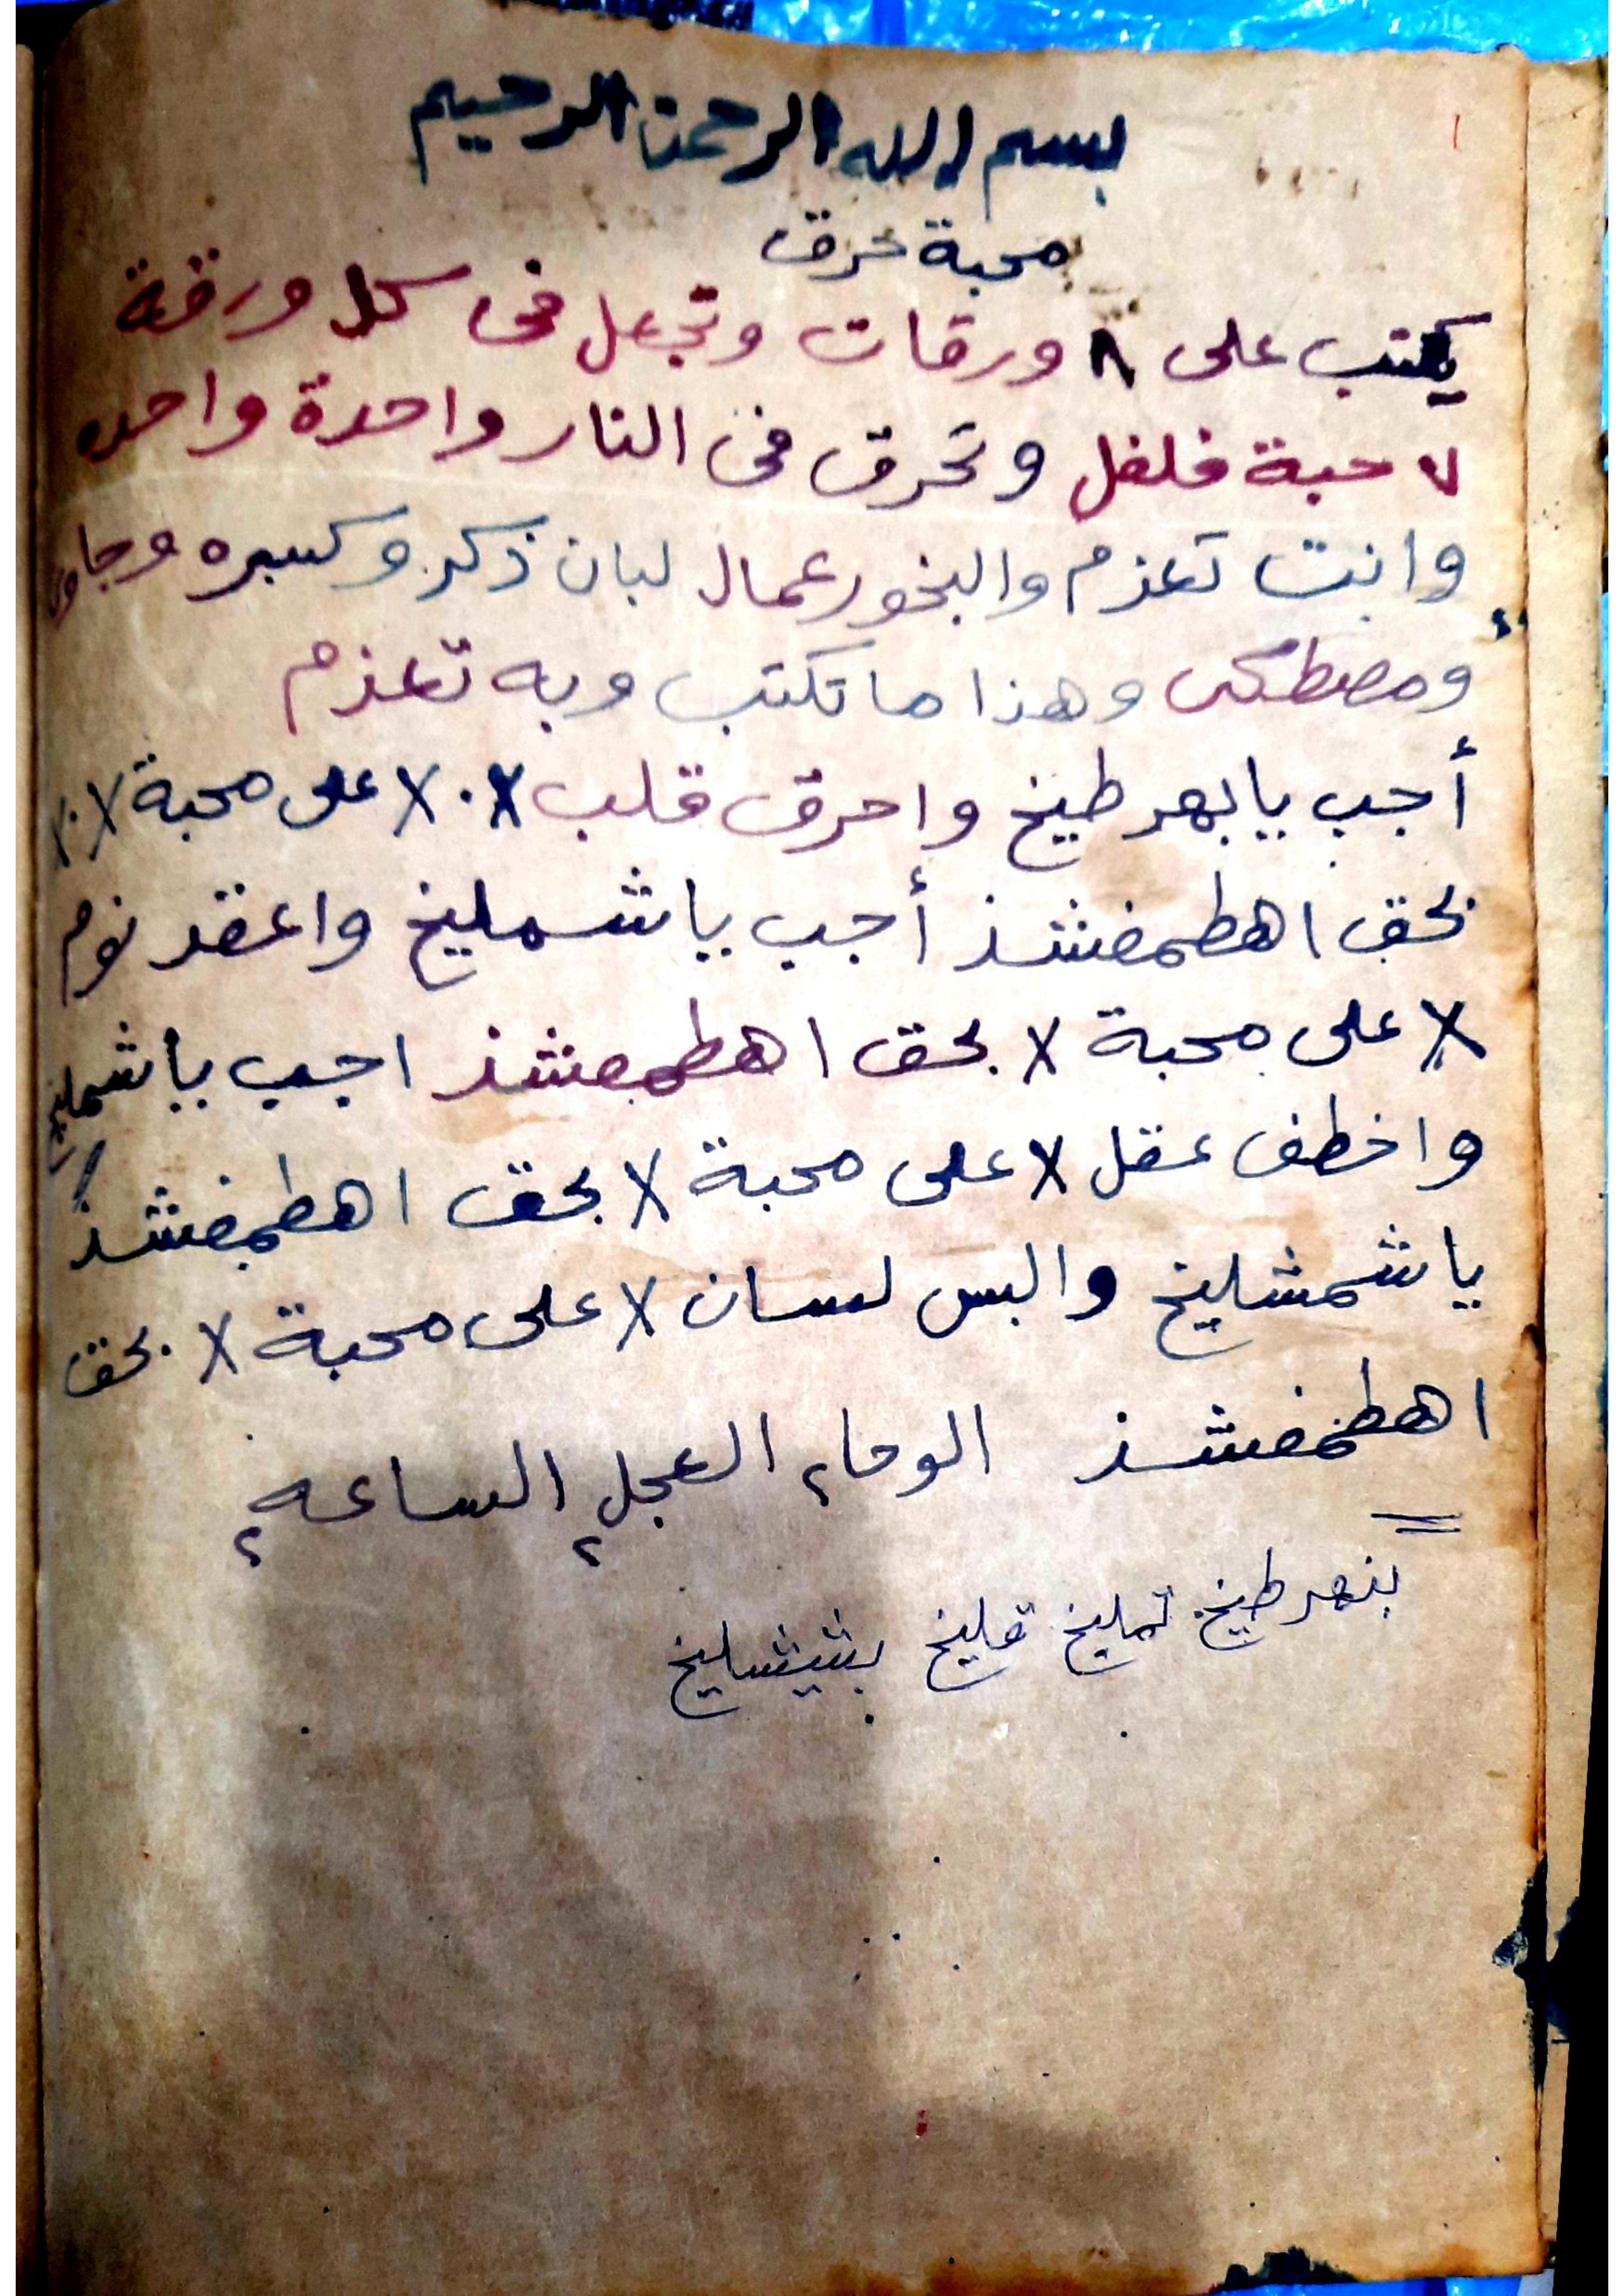 ١
بسم الله الرحمن الرحيم
محبة حرق
يكتب على ٨ ورقات وتجعل في كل ورقة
٧ حبة فلفل وتحرق في النار واحدة واحده
وانت تعزم والبخور عمال لبان ذكر وكسبره وجاوى
ومصطكى وهذا ما تكتب وبه تعزم
أجب يا بهرطيخ واحرق قلب X٠X على محبة X٠X
بحق اهطمفشذ أجب يا شمليخ واعقد نوم
X على محبة X بحق اهطمفشذ اجب يا شمليخ
واخطف عقل X على محبة X بحق اهطمفشذ
يا شمشليخ والبس لسان X على محبة X بحق
اهطمفشذ الوحا٢ العجل٢ الساعه٢
بنهرطيخ تمليخ قليخ